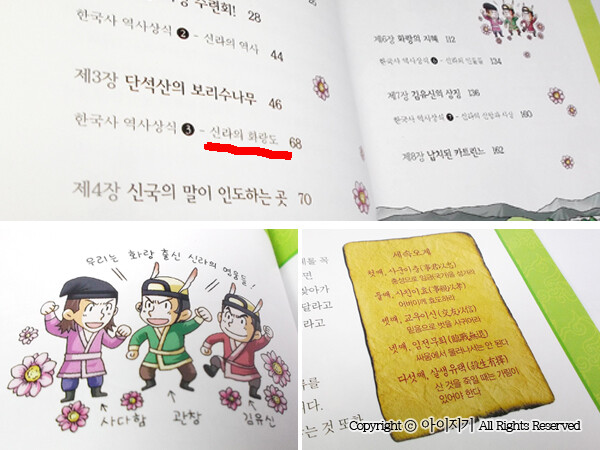 수련회! 28
한국사 역사상식 ❷ - 신라의 역사 44
제3장 단석산의 보리수나무 46
한국사 역사상식 ❸ - 신라의 화랑도 68
제4장 신국의 말이 인도하는 곳 70
제6장 화랑의 지혜 112
한국사 역사상식 ❻ - 신라의 인물들 134
제7장 김유신의 상징 136
한국사 역사상식 ❼ - 신라의 신앙과 사상 160
제8장 납치된 카트린느 162
우리는 화랑 출신 신라의 영웅들!
사다함
관창
김유신
세속오계
첫째, 사군이충(事君以忠)
충성으로 임금(국가)을 섬겨라
둘째, 사친이효(事親以孝)
어버이께 효도하라
셋째, 교우이신(交友以信)
믿음으로 벗을 사귀어라
넷째, 임전무퇴(臨戰無退)
싸움에서 물러나서는 안 된다
다섯째, 살생유택(殺生有擇)
산 것을 죽일 때는 가림이
있어야 한다
를 꼭
면
찾아가
달라고
라고
를
다.
는 것 또한
Copyright ⓒ 아이지기 All Rights Reserved